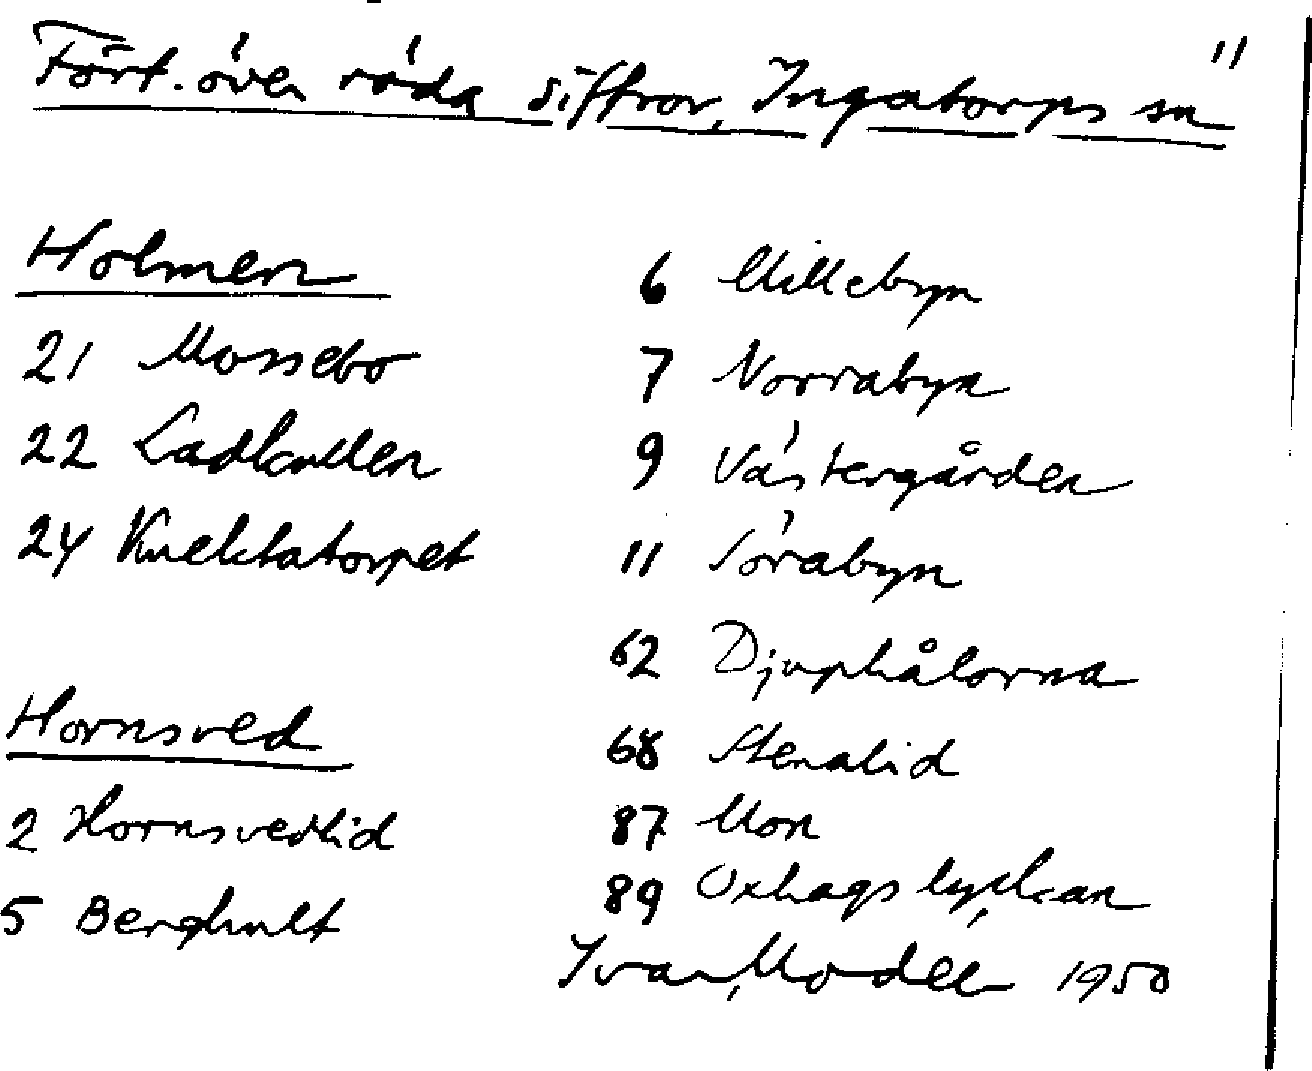 11
Fört. över röda siffror, Ingatorps sn
Holmen
21 Mossebo
22 Ladkullen
24 Knektatorpet
Hornsved
2 Hornsvedlid
5 Berghult
6 Millebyn
7 Norrabyn
9 Västergården
11 Sörabyn
62 Djuphålorna
68 Stenalid
87 Mon
89 Oxhagslyckan
Ivar Modéer 1950